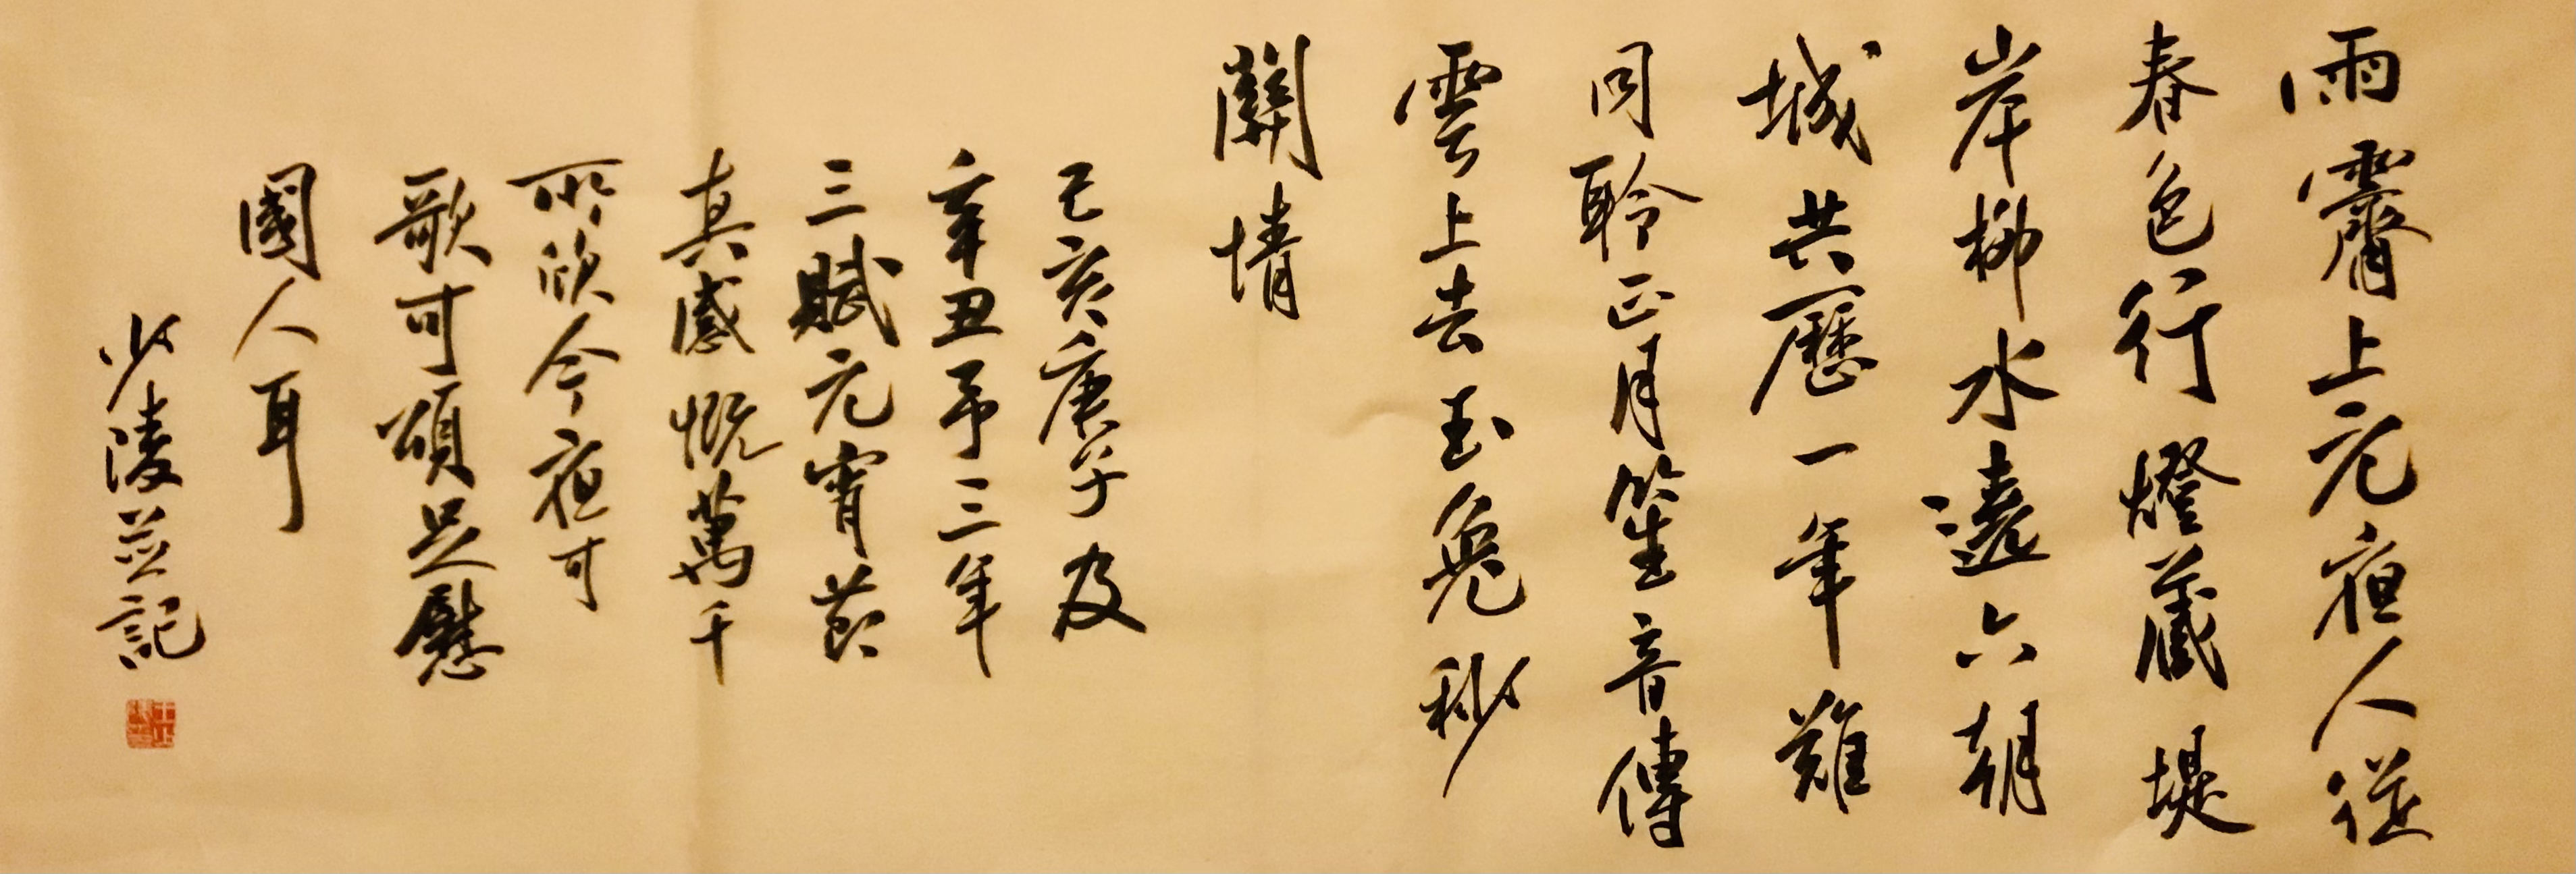 雨霽上元夜人從
春色行燈藏堤
岸柳水遶六朝
城共歷一年難
同聆正月笙音傳
雲上去玉兔秒
關情
己亥庚子及
辛丑予三年
三賦元宵節
真感慨萬千
所欣今夜可
歌可頌足慰
國人耳
少陵並記